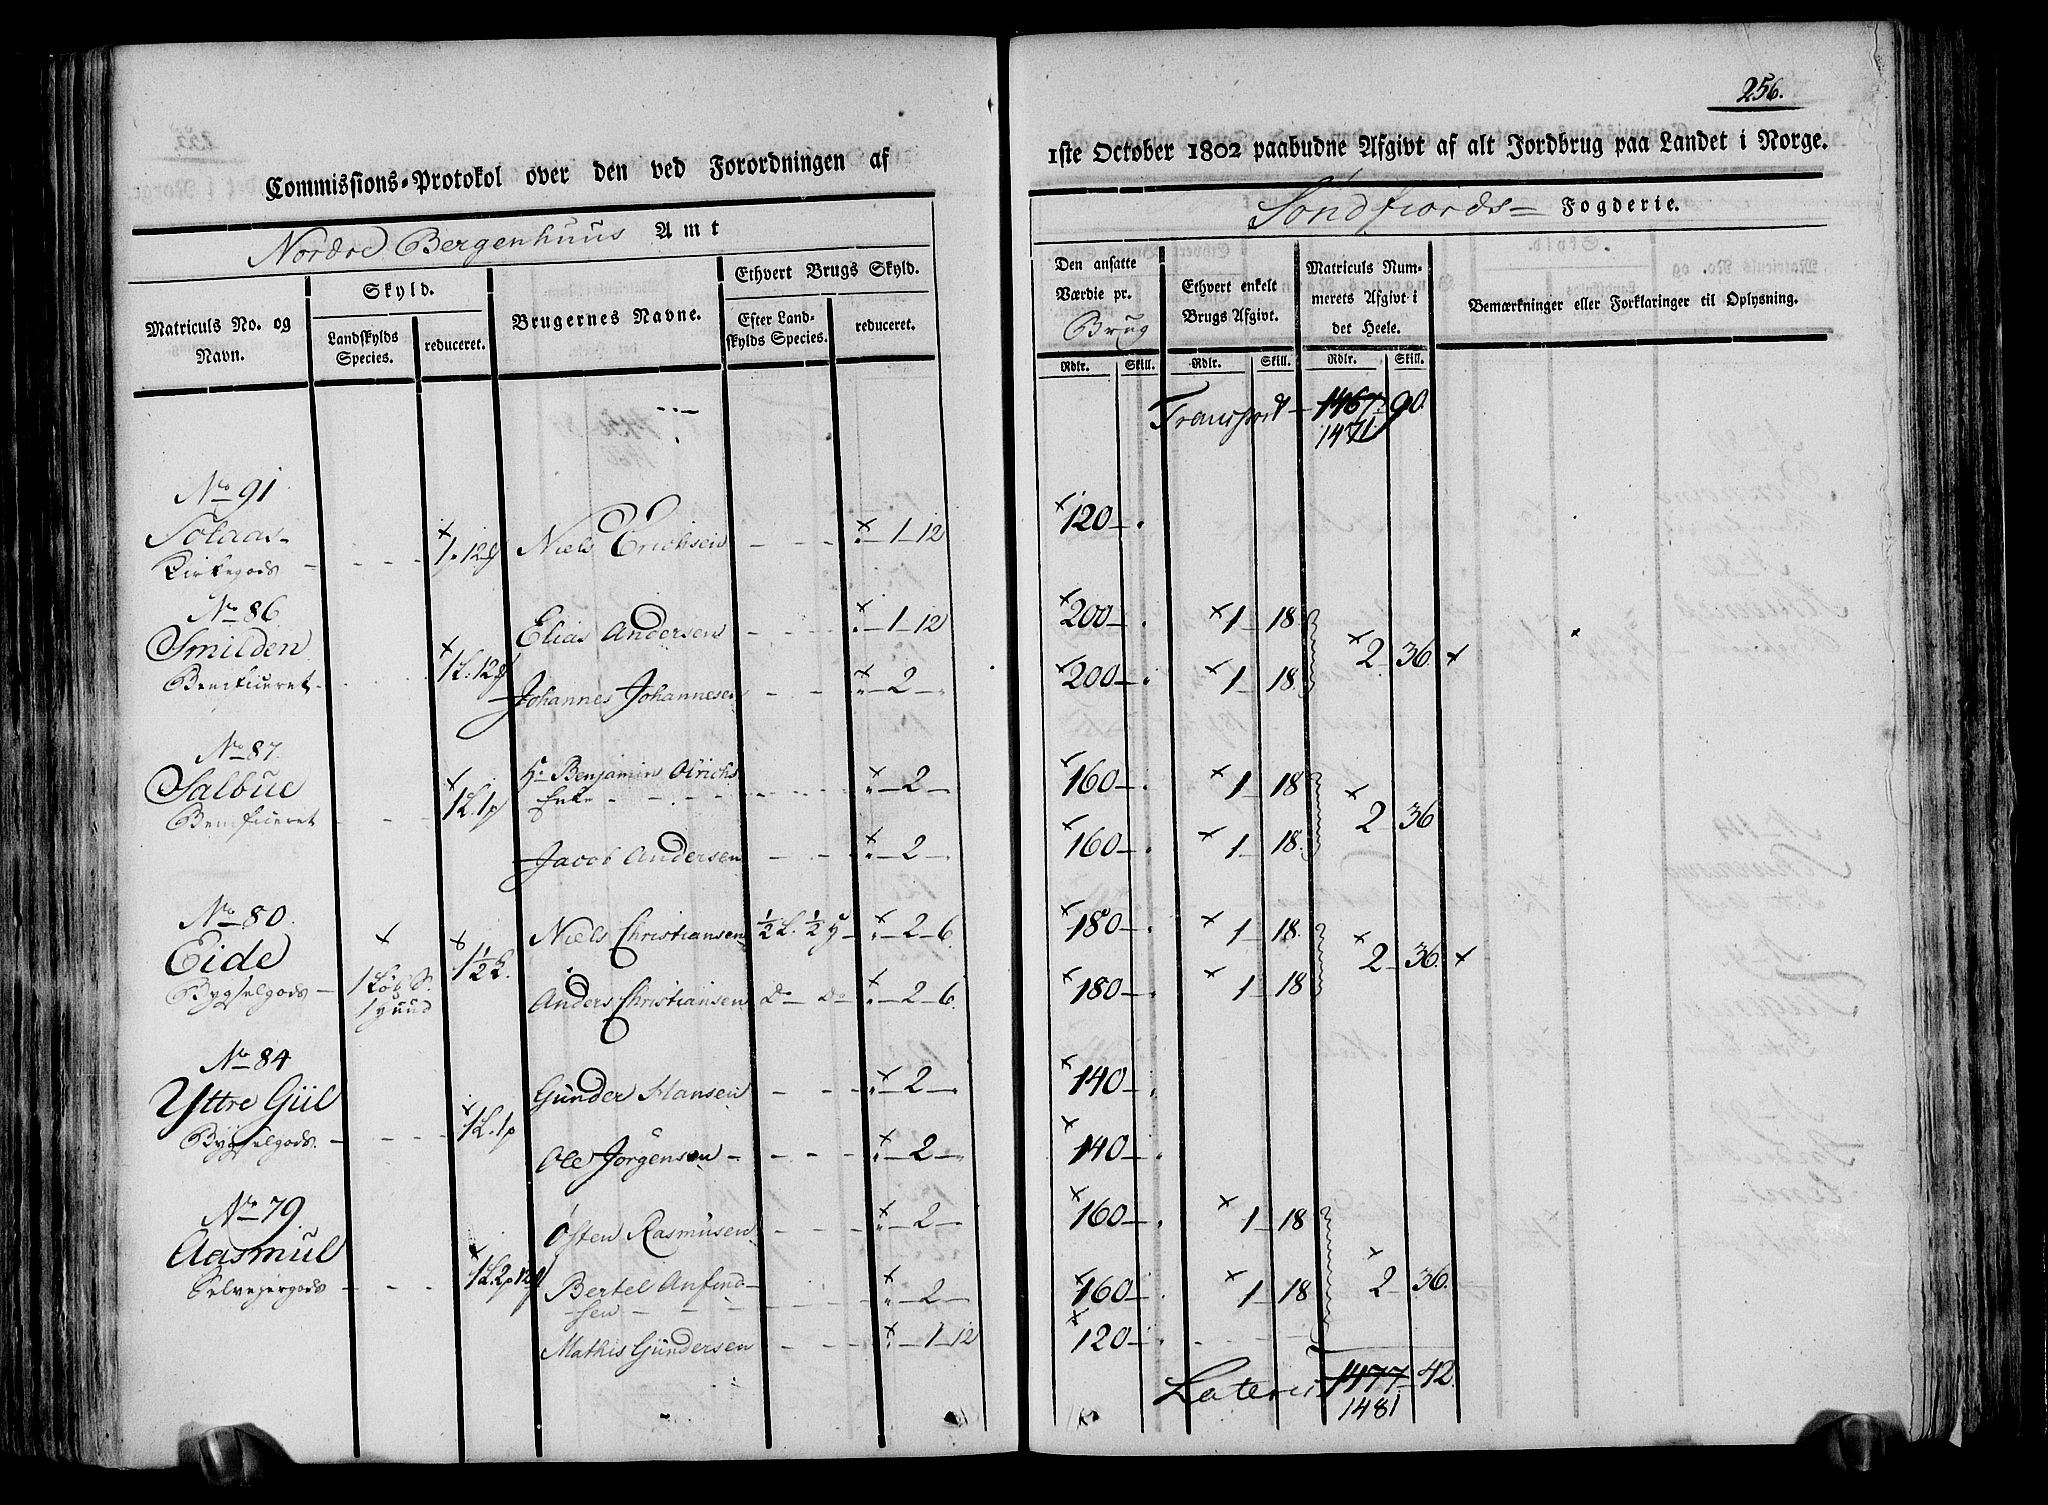 256.
Commissions-Protokol over den ved Forordningen af
1ste October 1802 paabudne Afgivt af alt Jordbrug paa Landet i Norge.
Nordre Bergenhuus Amt
Söndfiords Fogderie.
Matriculs No. og Navn.
Skyld.
Landskylds Species.
reduceret.
Brugernes Navne.
Ethvert Brugs Skyld.
Efter Landskylds Species.
reduceret.
Den ansatte Værdie pr. Brug
Ethvert enkelt Brugs Afgivt.
Matriculs Nummerets Afgivt i det Heele.
Bemærkninger eller Forklaringer til Oplysning.
Rdlr. Skill. Rdlr. Skill. Rdlr. Skill.
Transport 1467 90.
1471
No 91
Solaas
Kirkegods
Niels Erichsen 1 12 120
No 86
Smilden
Beneficeret
Elias Andersen 1 12 200 1 18
2 36
Johannes Johannesen 2 200 1 18
No 87.
Salbue
Beneficeret 1 L. 1 p
Hr Benjamin Olrichs
Enke 2 160 1 18
2 36
Jacob Andersen 2 160 1 18
No 80.
Eide
Bygselgods
1 Løb S.
1 Huud
1 1/2 L.
Niels Christiansen 1/2 L. 1/2 H 2 6. 180 1 18
2 36
Anders Christiansen do do 2 6. 180 1 18
No 84
Yttre Giil
Bygselgods 1 L. 1 p
Gunder Hansen 2 140
Ole Jörgensen 2 140
No 79.
Aasmul
Selvejergods
Östen Rasmusen 2 160 1 18
2 36.
Bertel Anfind-
sen 2 160 1 18
Mathis Gundersen 1 12 120
Lateris 1477 42.
1481